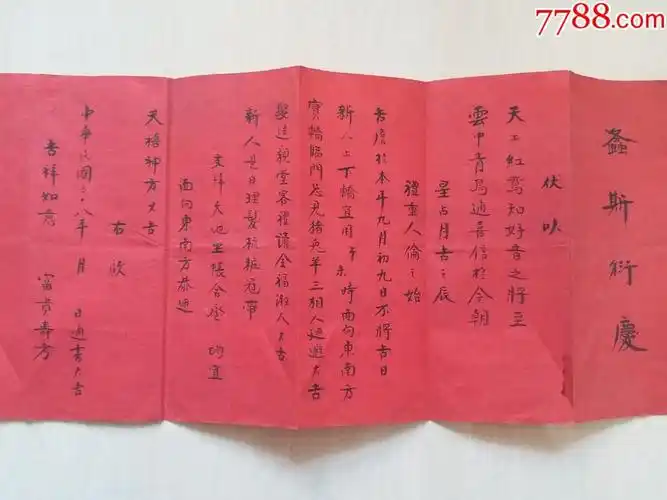 7788.com
螽斯衍慶
伏以
天上紅鸞知好音之將至
雲中青鳥通喜信於今朝
星占月吉之辰
禮重人倫之始
吉慶於本年九月初九日不將吉日
新人上下轎宜用 未時面向東南方
寶轎臨門忌兇猪兔羊三相人迴避大吉
娶送親堂客禮請全福淑人大吉
新人是日理髮梳粧冠笄
支拜天地坐帳合巹 均宜
面向東南方恭迎
天禧神方大吉
右啟
中華民國 八年 月 日通書大吉
吉祥如意 富貴壽考